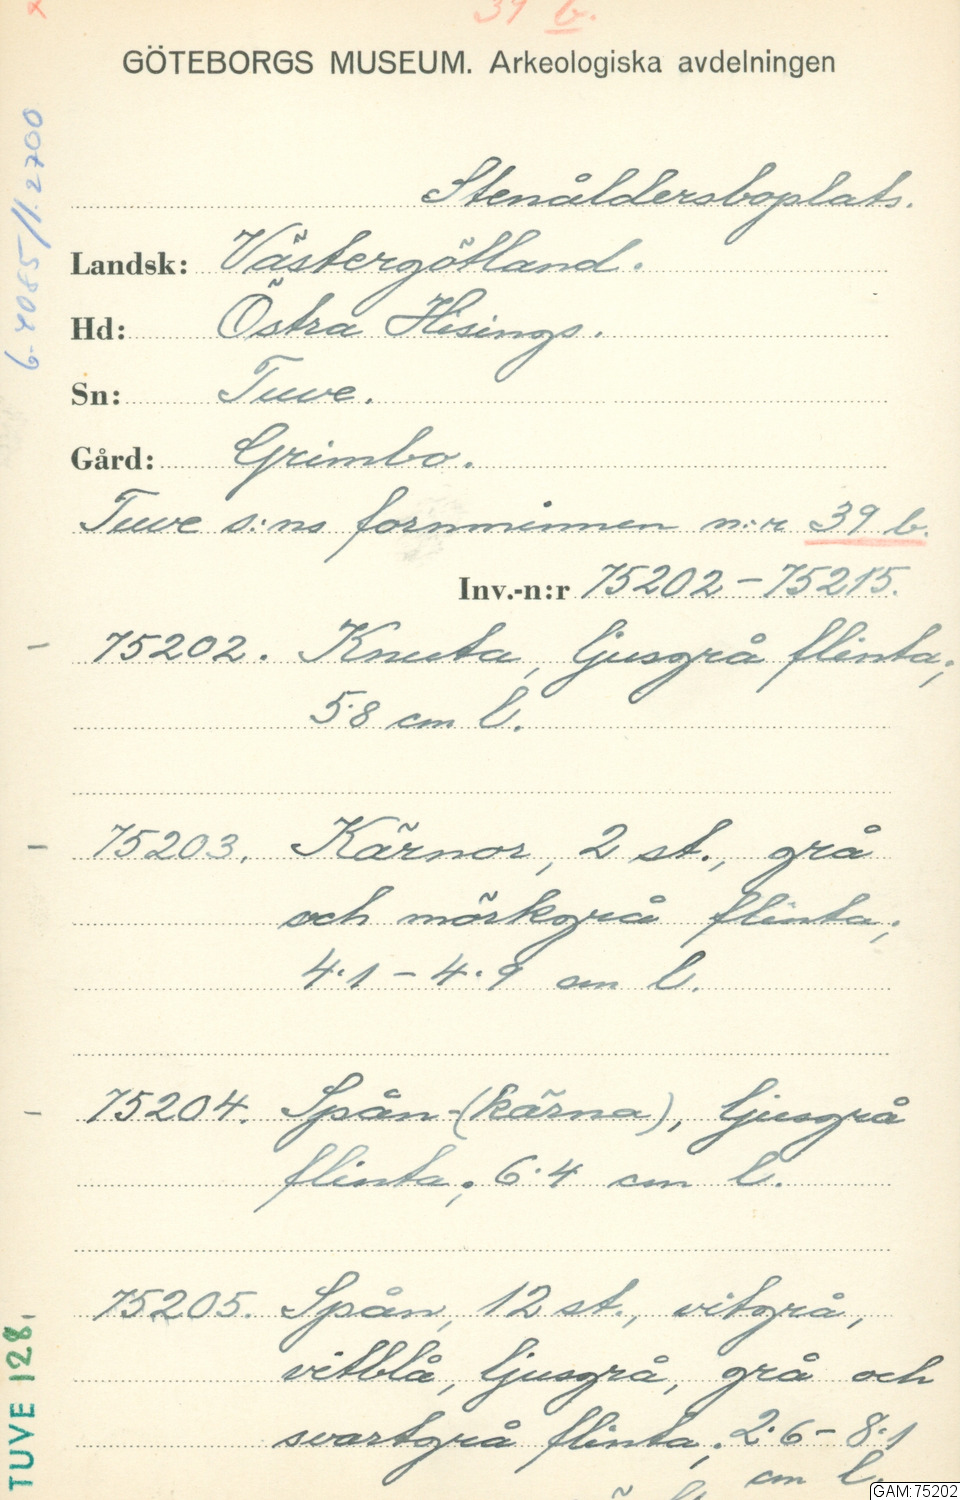 39 b.
GÖTEBORGS MUSEUM. Arkeologiska avdelningen
6-4085/1.2700
Stenåldersboplats.
Landsk: Västergötland.
Hd: Östra Hisings.
Sn: Tuve.
Gård: Grimbo.
Tuve s:ns fornminnen n:r 39 b.
Inv.-n:r 75202-75215.
75202. Knuta, ljusgrå flinta;
5·8 cm l.
75203. Kärnor, 2 st., grå
och mörkgrå flinta;
4·1-4·9 cm l.
75204. Spån-(kärna), ljusgrå
flinta; 6·4 cm l.
75205. Spån, 12 st., vitgrå,
vitblå, ljusgrå, grå och
svartgrå flinta; 2·6-8·1
cm l.
TUVE 128.
GAM:75202